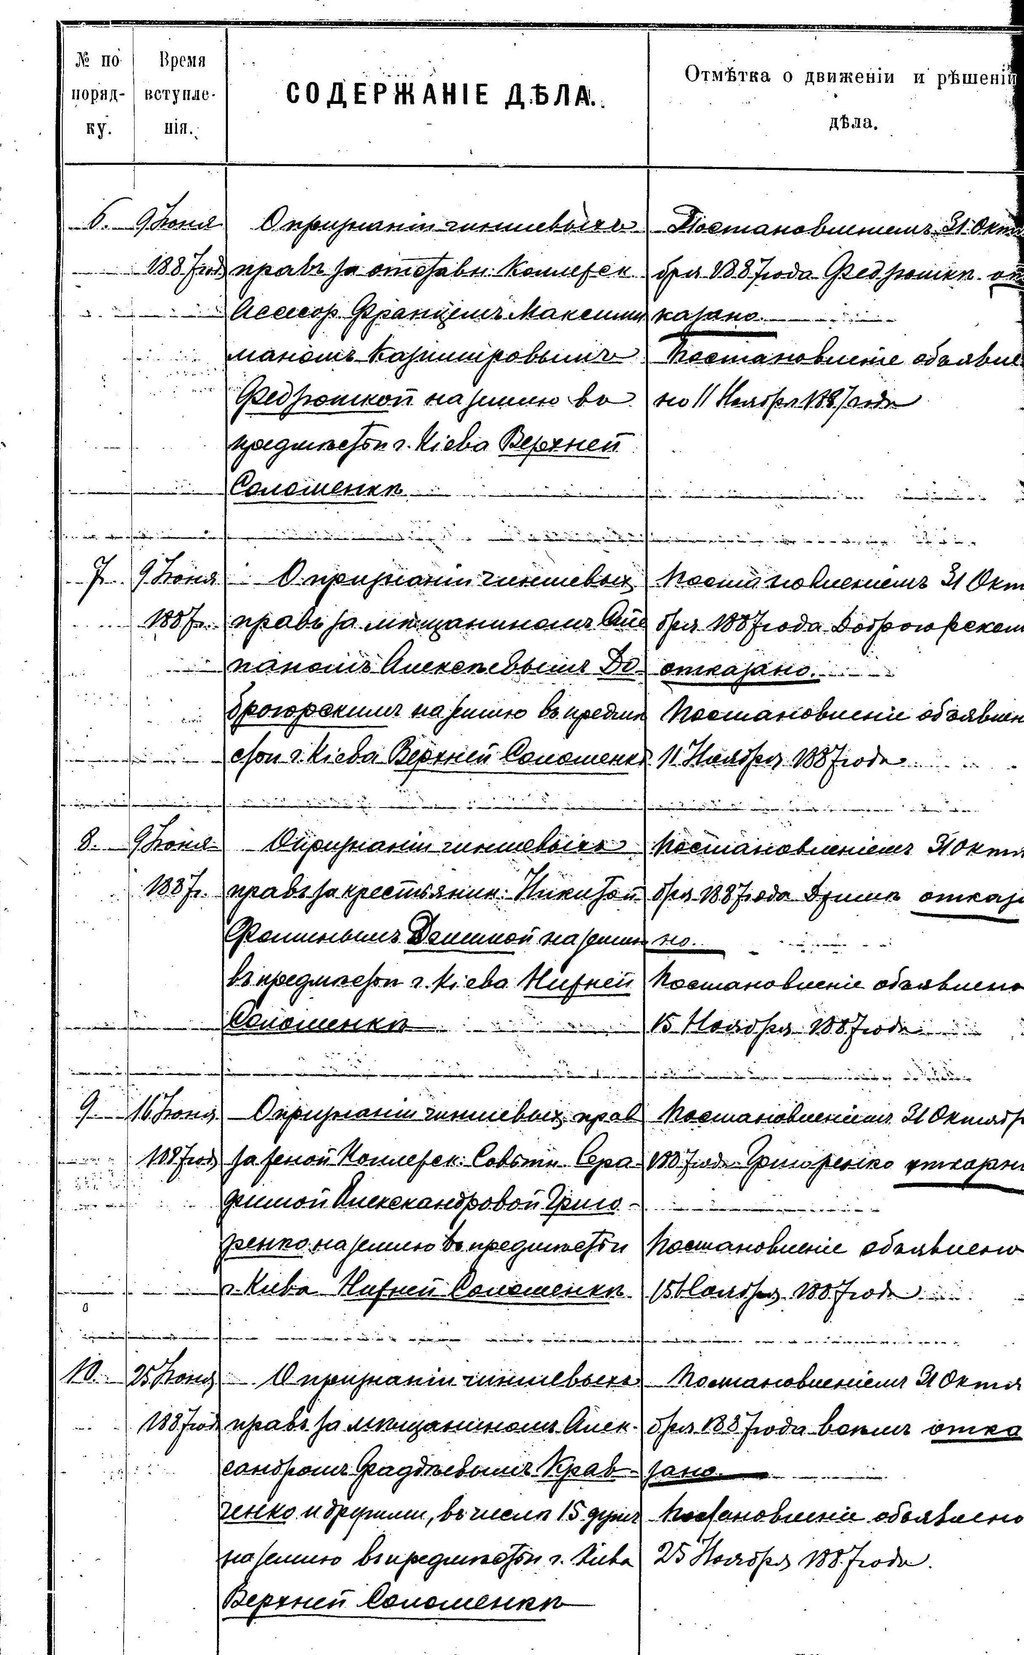 № по
поряд-
ку.
Время
вступле-
нія.
СОДЕРЖАНІЕ ДѢЛА.
Отмѣтка о движеніи и рѣшеніи
дѣла.
6.
9 Іюня
1887 год
О признаніи чиншевыхъ
правъ за отставн. Коллежск.
Асессор. Францемъ Максими
маномъ Казимировымъ
Федзюшкой на землю во
предмѣстьи г. Кіева Верхней
Соломенкѣ
Постановленіемъ 31 Октя
бря 1887 года Федзюшкѣ от
казано.
Постановленіе объявле
но 11 Ноября 1887 года
7.
9 Іюня
1887 г.
О признаніи чиншевыхъ
правъ за мѣщаниномъ
паномъ Алексѣевымъ До-
брогорскимъ на землю въ предмѣ
стьи г. Кіева Верхней Соломенкѣ
Постановленіемъ 31 Октя
бря 1887 года Доброгорском
отказано.
Постановленіе объявлен
11 Ноября 1887 года
8.
9 Іюня
1887 г.
О признаніи чиншевыхъ
правъ за крестьянин. Никитой
Фоминымъ на землю
въ предмѣстьи г. Кіева Нижней
Соломенкѣ
Постановленіемъ 31 Октя
бря 1887 года отказа
но.
Постановленіе объявлено
15 Ноября 1887 года
9.
16 Іюня
1887 год
О признаніи чиншевыхъ прав
за женой Коллежск. Совѣтн. Сера
фимой Александровой Григо-
ренко на землю въ предмѣстьи
г. Кіева Нижней Соломенкѣ
Постановленіемъ 31 Октябр
1887 года Григоренко отказан
Постановленіе объявлено
15 Ноября 1887 года
10.
25 Іюня
1887 год
О признаніи чиншевыхъ
правъ за мѣщаниномъ Алек-
сандромъ Фаддѣевымъ Крав-
ченко и другими, въ числѣ 15 душъ
на землю въ предмѣстьи г. Кіева
Верхней Соломенкѣ
Постановленіемъ 31 Октя
бря 1887 года всѣмъ отка
зано.
Постановленіе объявлено
25 Ноября 1887 года.